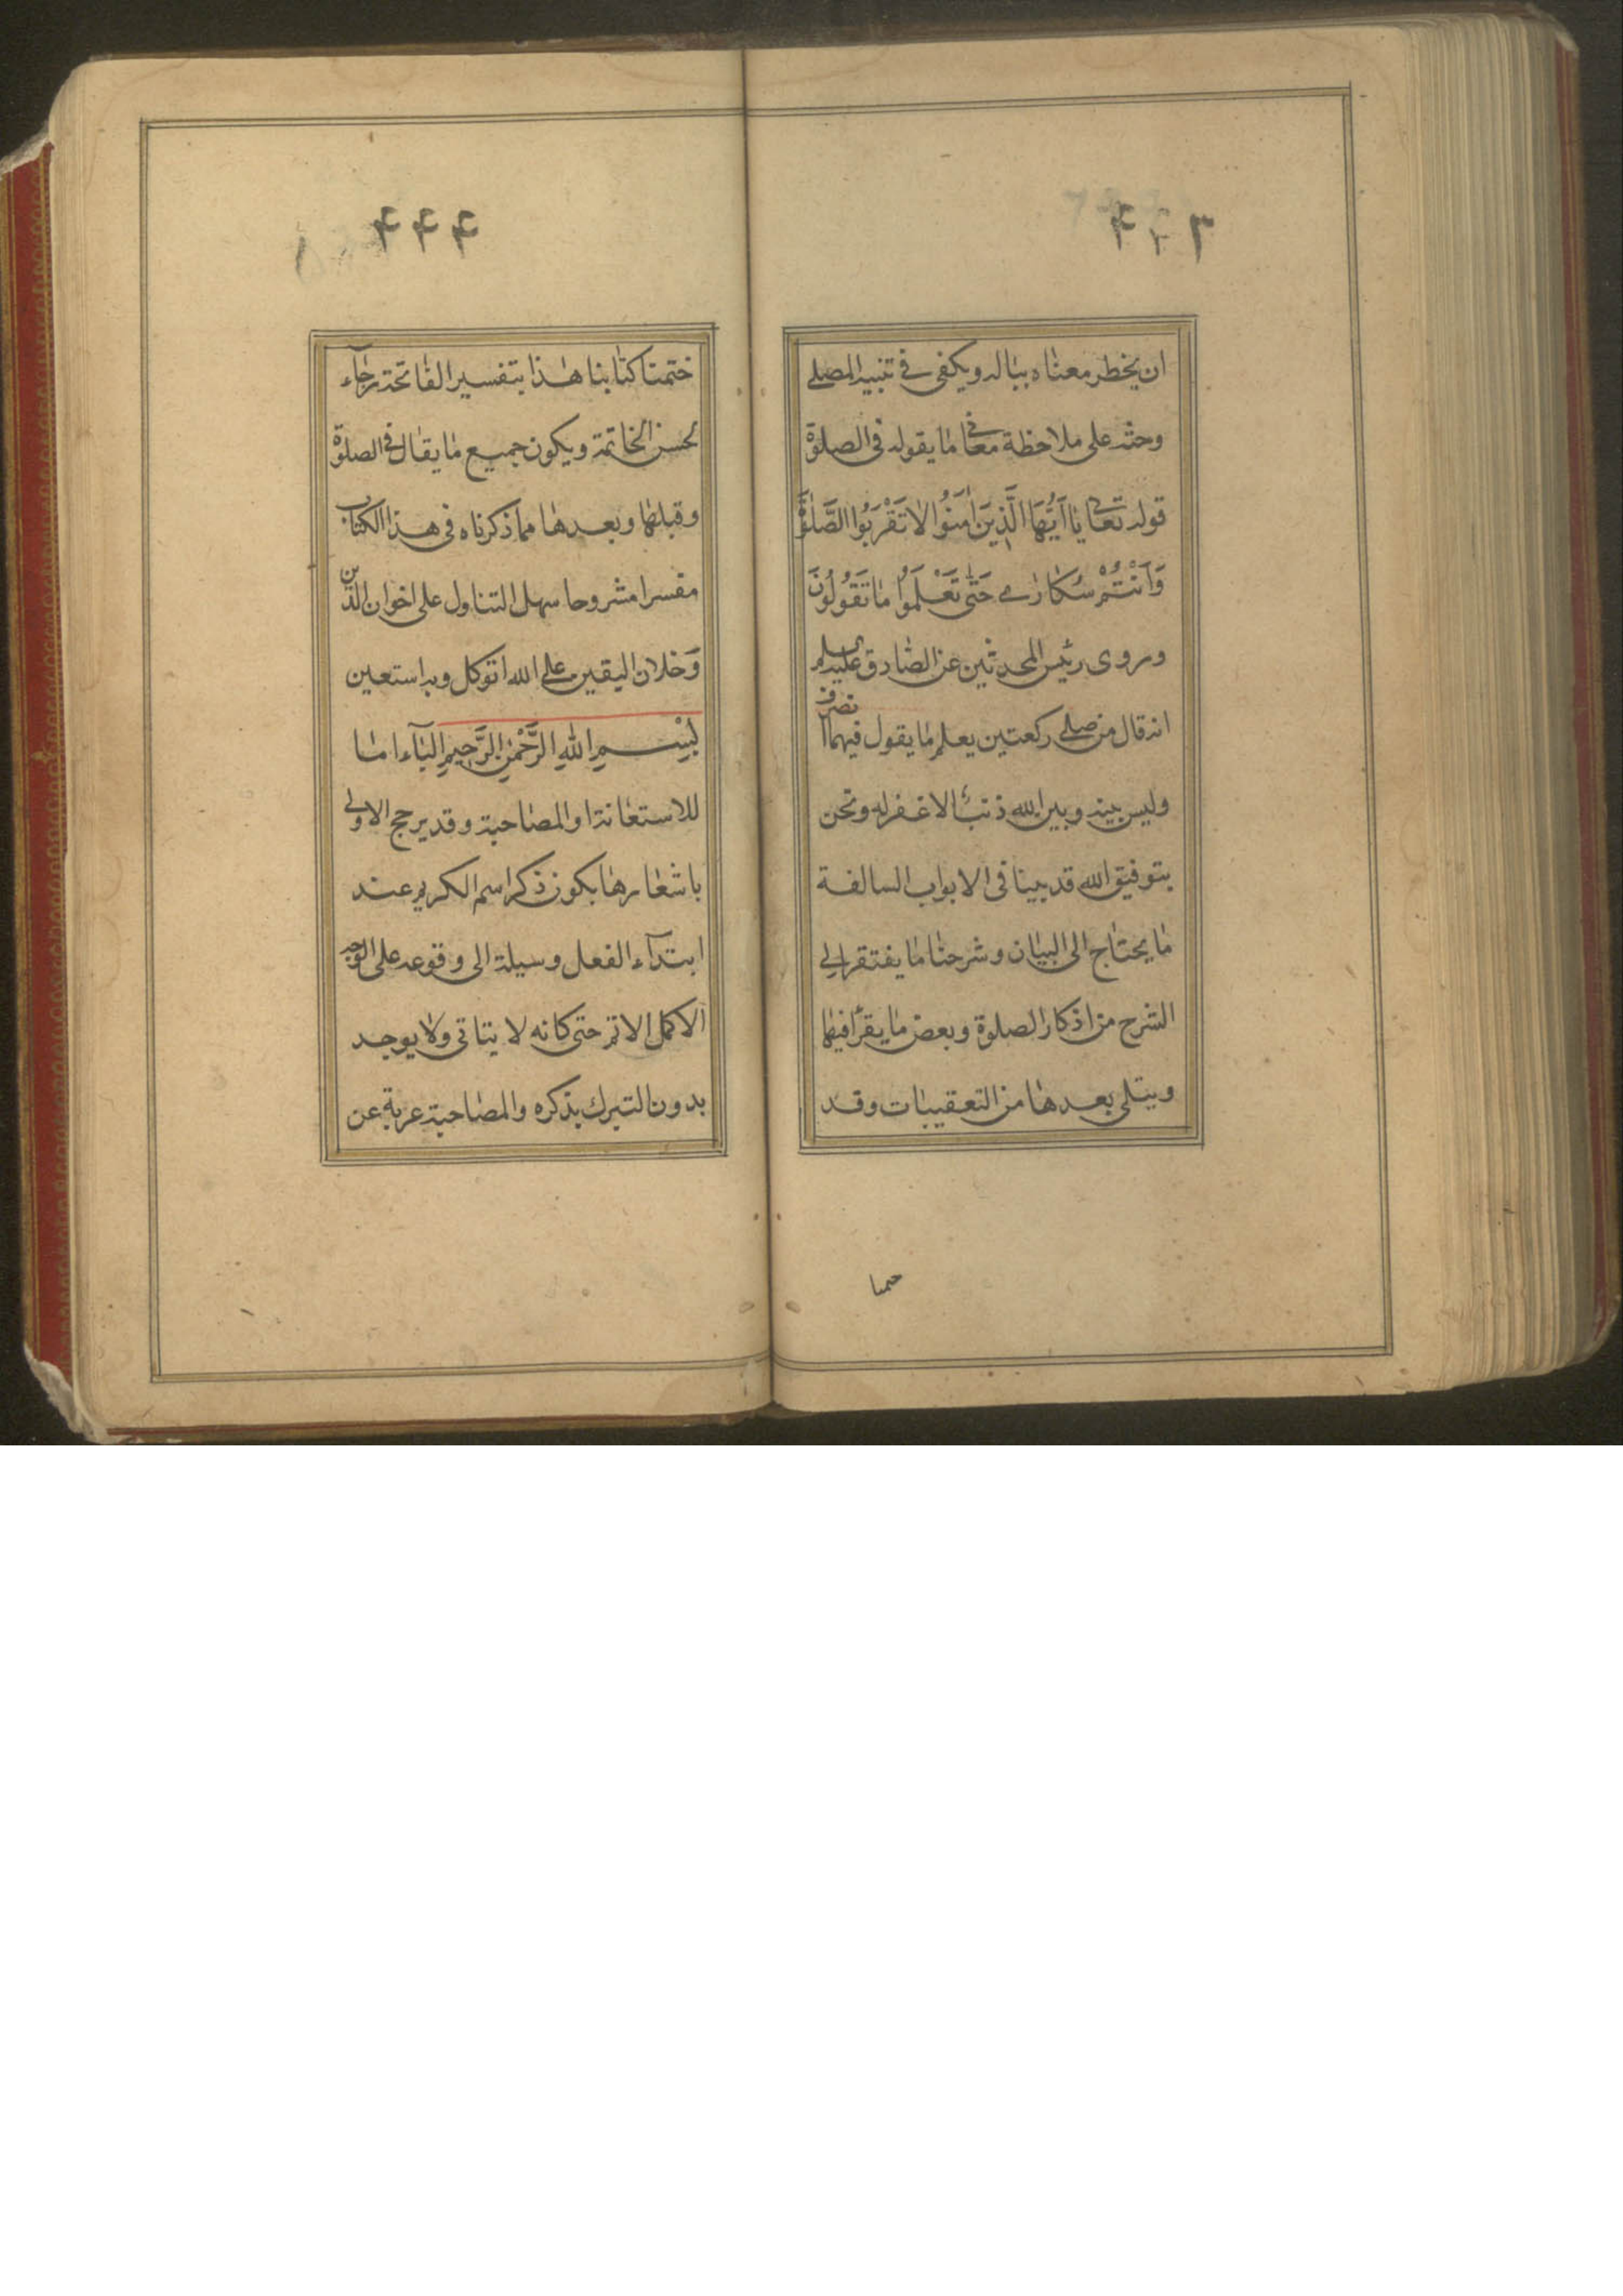 ۴۴۳
ان يخطر معناه بباله ويكفى فى تنبيه المصلى
وحثه على ملاحظة معانى ما يقوله فى الصلوة
قوله تعالى يٰا اَيُّهَا الَّذِينَ اٰمَنُوا لاٰ تَقْرَبُوا الصَّلٰوةَ
وَاَنْتُمْ سُكٰارٰى حَتّٰى تَعْلَمُوا مٰا تَقُولُونَ
وروى رئيس المحدثين عن الصادق عليه السلم
انه قال من صلى ركعتين يعلم ما يقول فيهما انصرف
وليس بينه وبين الله ذنب الا غفر له ونحن
بتوفيق الله قد بينا فى الابواب السالفة
ما يحتاج الى البيان وشرحنا ما يفتقر الى
الشرح من اذكار الصلوة وبعض ما يقرأ فيها
ويتلى بعدها من التعقيبات وقد
ختمنا
۴۴۴
ختمنا كتابنا هذا بتفسير الفاتحة رجآء
لحسن الخاتمة ويكون جميع ما يقال فى الصلوة
وقبلها وبعدها مما ذكرناه فى هذا الكتاب
مفسرا مشروحا سهل التناول على اخوان الدين
وَخلان اليقين على الله اتوكل وبه استعين
بِسْمِ اللّٰهِ الرَّحْمٰنِ الرَّحِيمِ البآء اما
للاستعانة او المصاحبة وقد يرجح الاولى
باشعارها بكون ذكر اسم الكريم عند
ابتدآء الفعل وسيلة الى وقوعه على الوجه
الاكمل الاتم حتى كانه لا يتاتى ولا يوجد
بدون التبرك بذكره والمصاحبة عرية عن